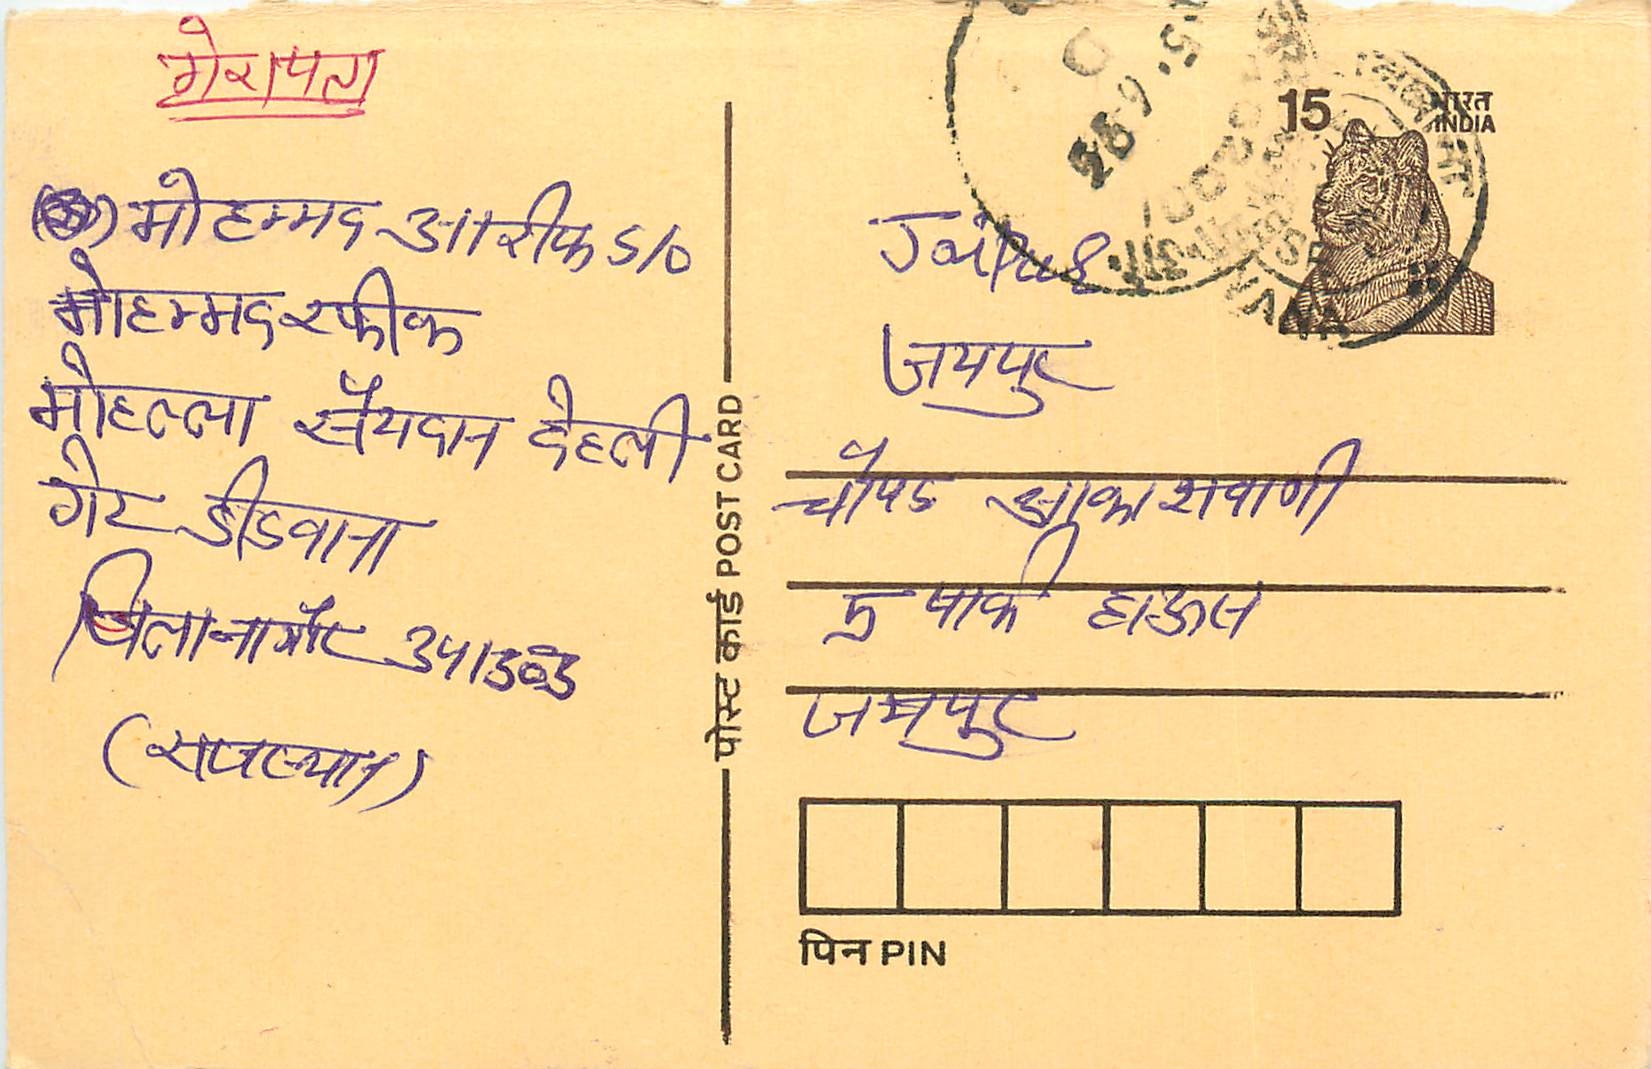 मेरा पता
मोहम्मद आरीफ S/O
मोहम्मद रफीक
मोहल्ला सैयदान देहली
गेट डीडवाना
जिला नागौर 341303
(राजस्थान)
पोस्ट कार्ड POST CARD
15
भारत
INDIA
Jaipur
जयपुर
चौपड आकाशवाणी
5 पार्क हाऊस
जयपुर
पिन PIN